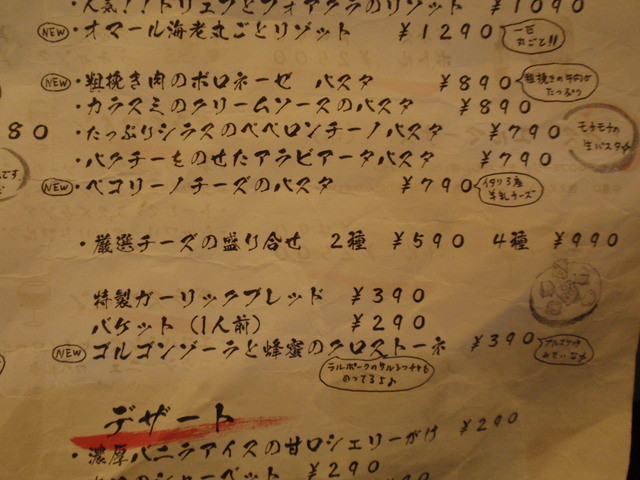 ・人気!!トリュフとフォアグラのリゾット ¥1090
NEW ・オマール海老丸ごとリゾット ¥1290 一匹丸ごと!!
NEW ・粗挽き肉のボロネーゼ パスタ ¥890 粗挽きの牛肉がたっぷり
・カラスミのクリームソースのパスタ ¥890
80 ・たっぷりシラスのペペロンチーノパスタ ¥790 モチモチの生パスタ
・パクチーをのせたアラビアータパスタ ¥790
です。
NEW ・ペコリーノチーズのパスタ ¥790 イタリア産羊乳チーズ
・厳選チーズの盛り合せ 2種 ¥590 4種 ¥990
特製ガーリックブレッド ¥390
バケット(1人前) ¥290
NEW ゴルゴンゾーラと蜂蜜のクロストーネ ¥390 ブルスケッタみたいなの
のってるよ♪
デザート
・濃厚バニラアイスの甘口シェリーがけ ¥290
のシャーベット ¥290